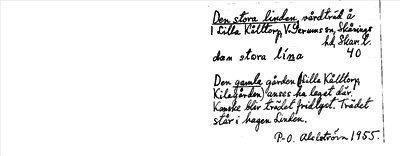 Den stora linden, vårdträd å
1 Lilla Kålltorp V. Gerums sn, Skånings
hd, Skar. l.
dan stora lina 40
Den gamla gården (Lilla Kålltorp,
Kilagården) anses ha legat där.
Kanske blir trädet fridlyst. Trädet
står i hagen Linden.
P-O. Ahlström 1955.